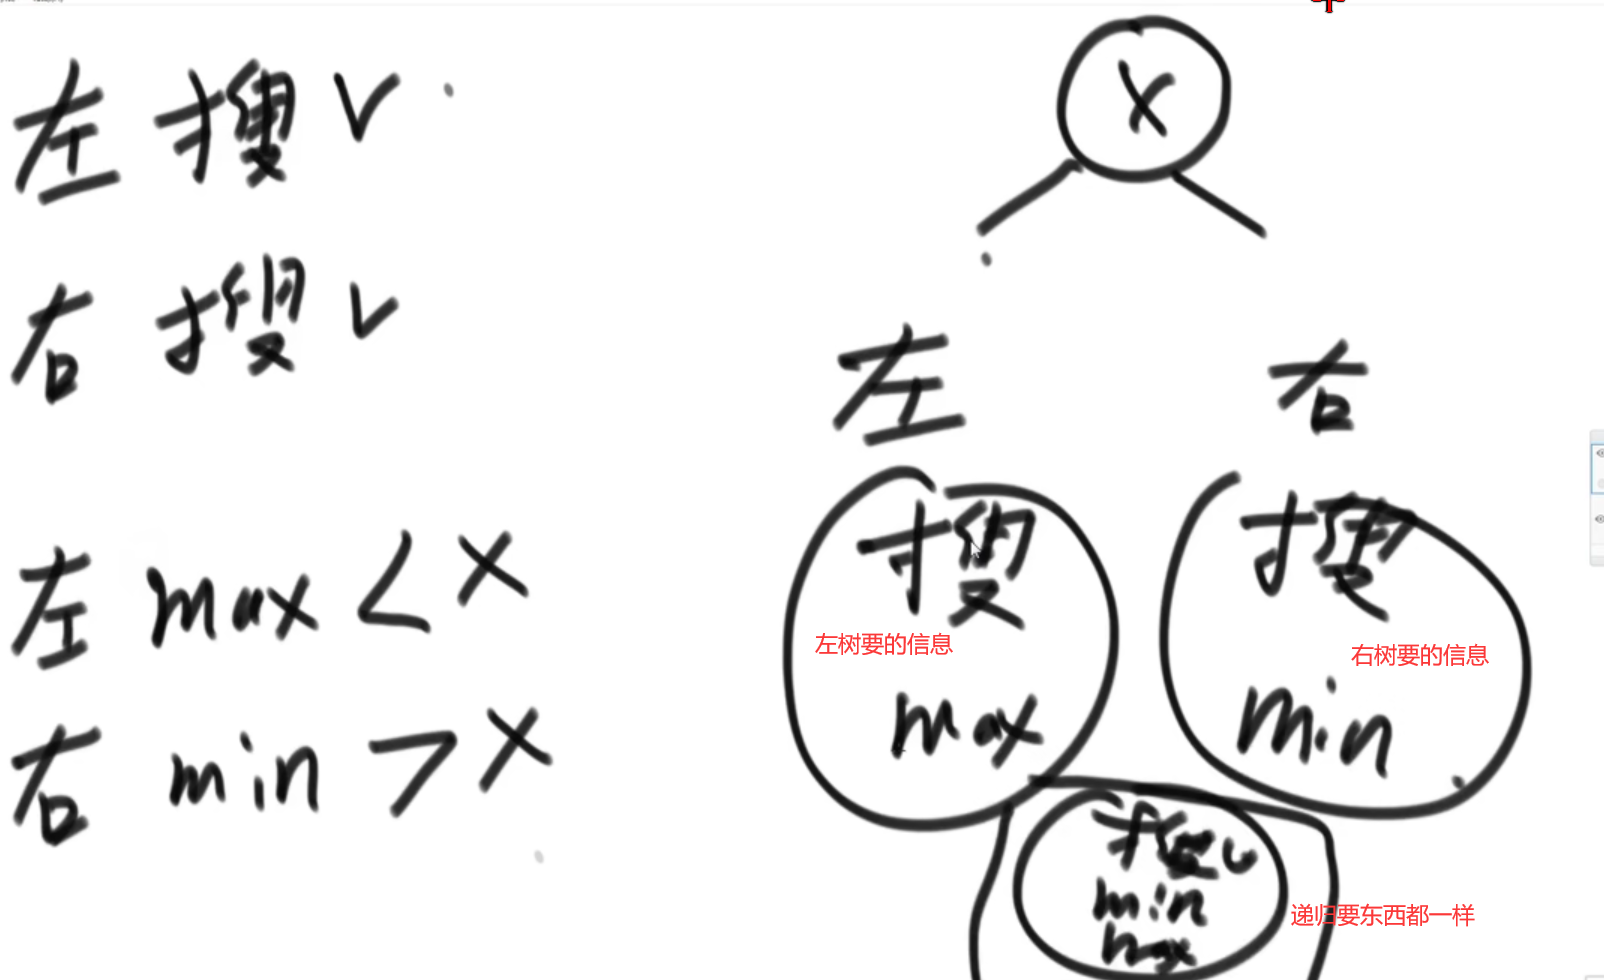 左 搜 √
右 搜 √
左 max < X
右 min > X
X
左
右
搜
左树要的信息
max
搜
右树要的信息
min
搜
min
max
递归要东西都一样